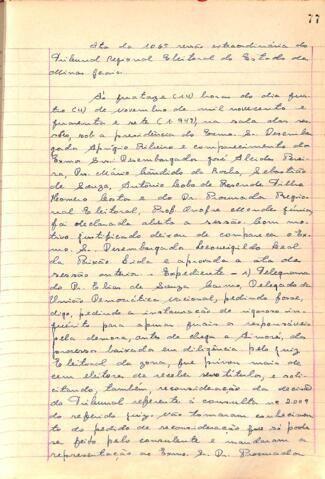 77
Ata da 106ª sessão extraordinária do
Tribunal Regional Eleitoral do Estado de
Minas Gerais.
Às quatorze (14) horas do dia quatro
(4) de novembro de mil novecentos e
quarenta e sete (1.947), na sala das ses-
sões, sob a presidência do Exmo. Sr. Desembar-
gador Aprígio Ribeiro e comparecimento dos
Exmos Srs. Desembargador José Alcides Perei-
ra, Drs. Mário Cândido da Rocha, Sebastião
de Souza, Antônio Lobo de Resende Filho,
Costa e do Dr. Procurador Regio-
nal Eleitoral, Prof. Onofre Mendes Júnior,
foi declarada aberta a sessão. Com mo-
tivo justificado deixou de comparecer o Ex-
mo. Sr. Desembargador Leovigildo Leal
da Paixão. Lida e aprovada a ata da
sessão anterior. Expediente - 1) Telegrama
do Dr. Elias de Souza Carmo, Delegado da
União Democrática Nacional, pedindo fosse,
digo, pedindo a instauração de rigoroso in-
quérito para apurar quais os responsáveis
pela demora, antes de chegar a Sinoré, do
processo baixado em diligência pelo Juiz
Eleitoral da zona, que privou mais de
cem eleitores de receber seus títulos, e soli-
citando, também, reconsideração da decisão
do Tribunal referente à consulta nº 2.009
do referido juiz. Não tomaram conhecimen-
to do pedido de reconsideração que só pode
ser feito pelo consulente e mandaram a
representação ao Exmo. Sr. Dr. Procurador